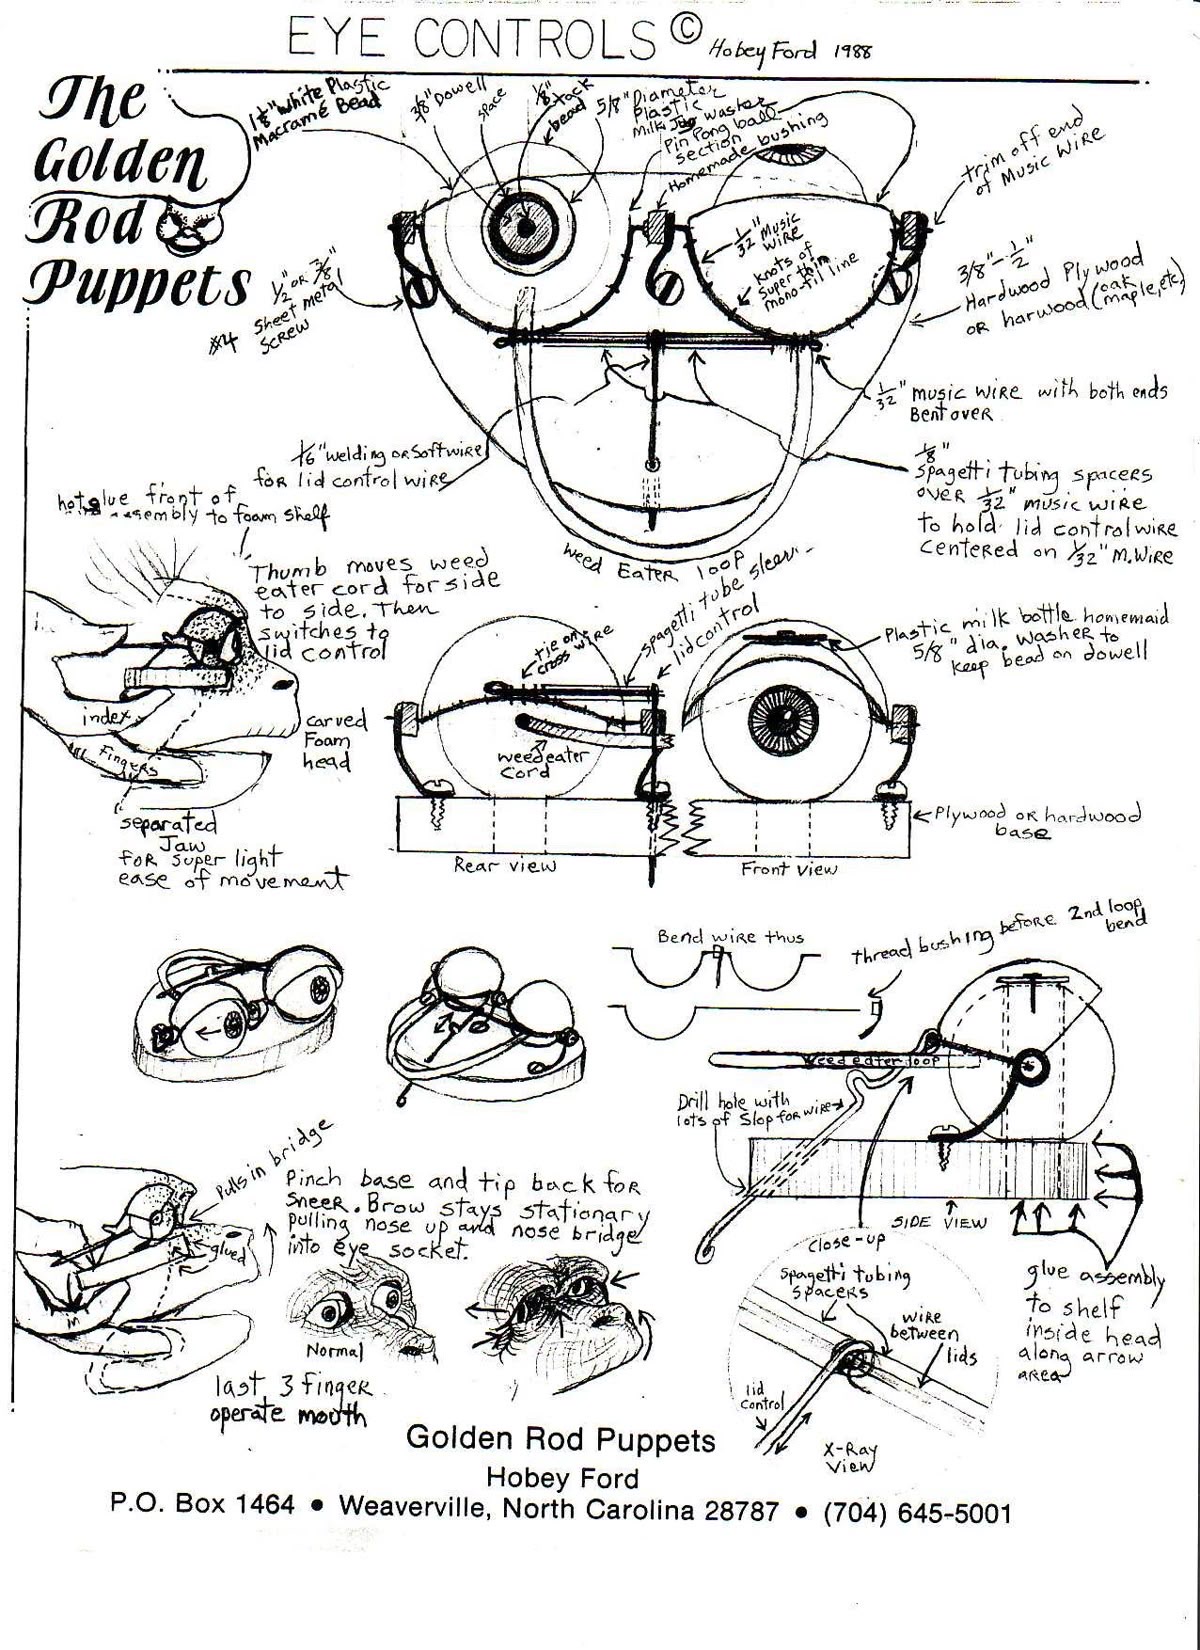 EYE CONTROLS © Hobey Ford 1988
The
Golden
Rod
Puppets
1 1/8" White Plastic
Macramé Bead
3/8" Dowell
space
1/8" tack
bead
5/8" Diameter
Plastic
Milk Jug washer
Pin Pong ball
section
Homemade bushing
trim off end
of Music Wire
1/2" OR 3/8"
#4 Sheet metal
SCREW
1/32" Music
WIRE
knots of
super thin
mono-fil line
3/8"-1/2"
Hardwood Plywood
OR harwood (oak,
maple, etc)
1/32" music wire with both ends
Bent over
1/16" welding or Soft wire
for lid control wire
1/8"
Spagetti tubing spacers
over 1/32" music wire
to hold lid control wire
centered on 1/32" M.Wire
Weed Eater loop
hot glue front of
assembly to foam shelf
Thumb moves weed
eater cord for side
to side. Then
switches to
lid control
index
Fingers
carved
Foam
head
separated
Jaw
for super light
ease of movement
tie on
cross wire
spagetti tube sleev
lid control
weedeater
cord
Plastic milk bottle homemaid
5/8" dia. washer to
keep bead on dowell
Plywood or hardwood
base
Rear view
Front view
Bend wire thus
thread bushing before 2nd loop
bend
weed eater loop
Drill hole with
lots of Slop for wire
SIDE VIEW
Pulls in bridge
glued
Pinch base and tip back for
Sneer. Brow stays stationary
pulling nose up and nose bridge
into eye socket.
Normal
last 3 finger
operate mouth
close-up
Spagetti tubing
spacers
wire
between
lids
lid
control
X-Ray
View
glue assembly
to shelf
inside head
along arrow
area
Golden Rod Puppets
Hobey Ford
P.O. Box 1464 • Weaverville, North Carolina 28787 • (704) 645-5001